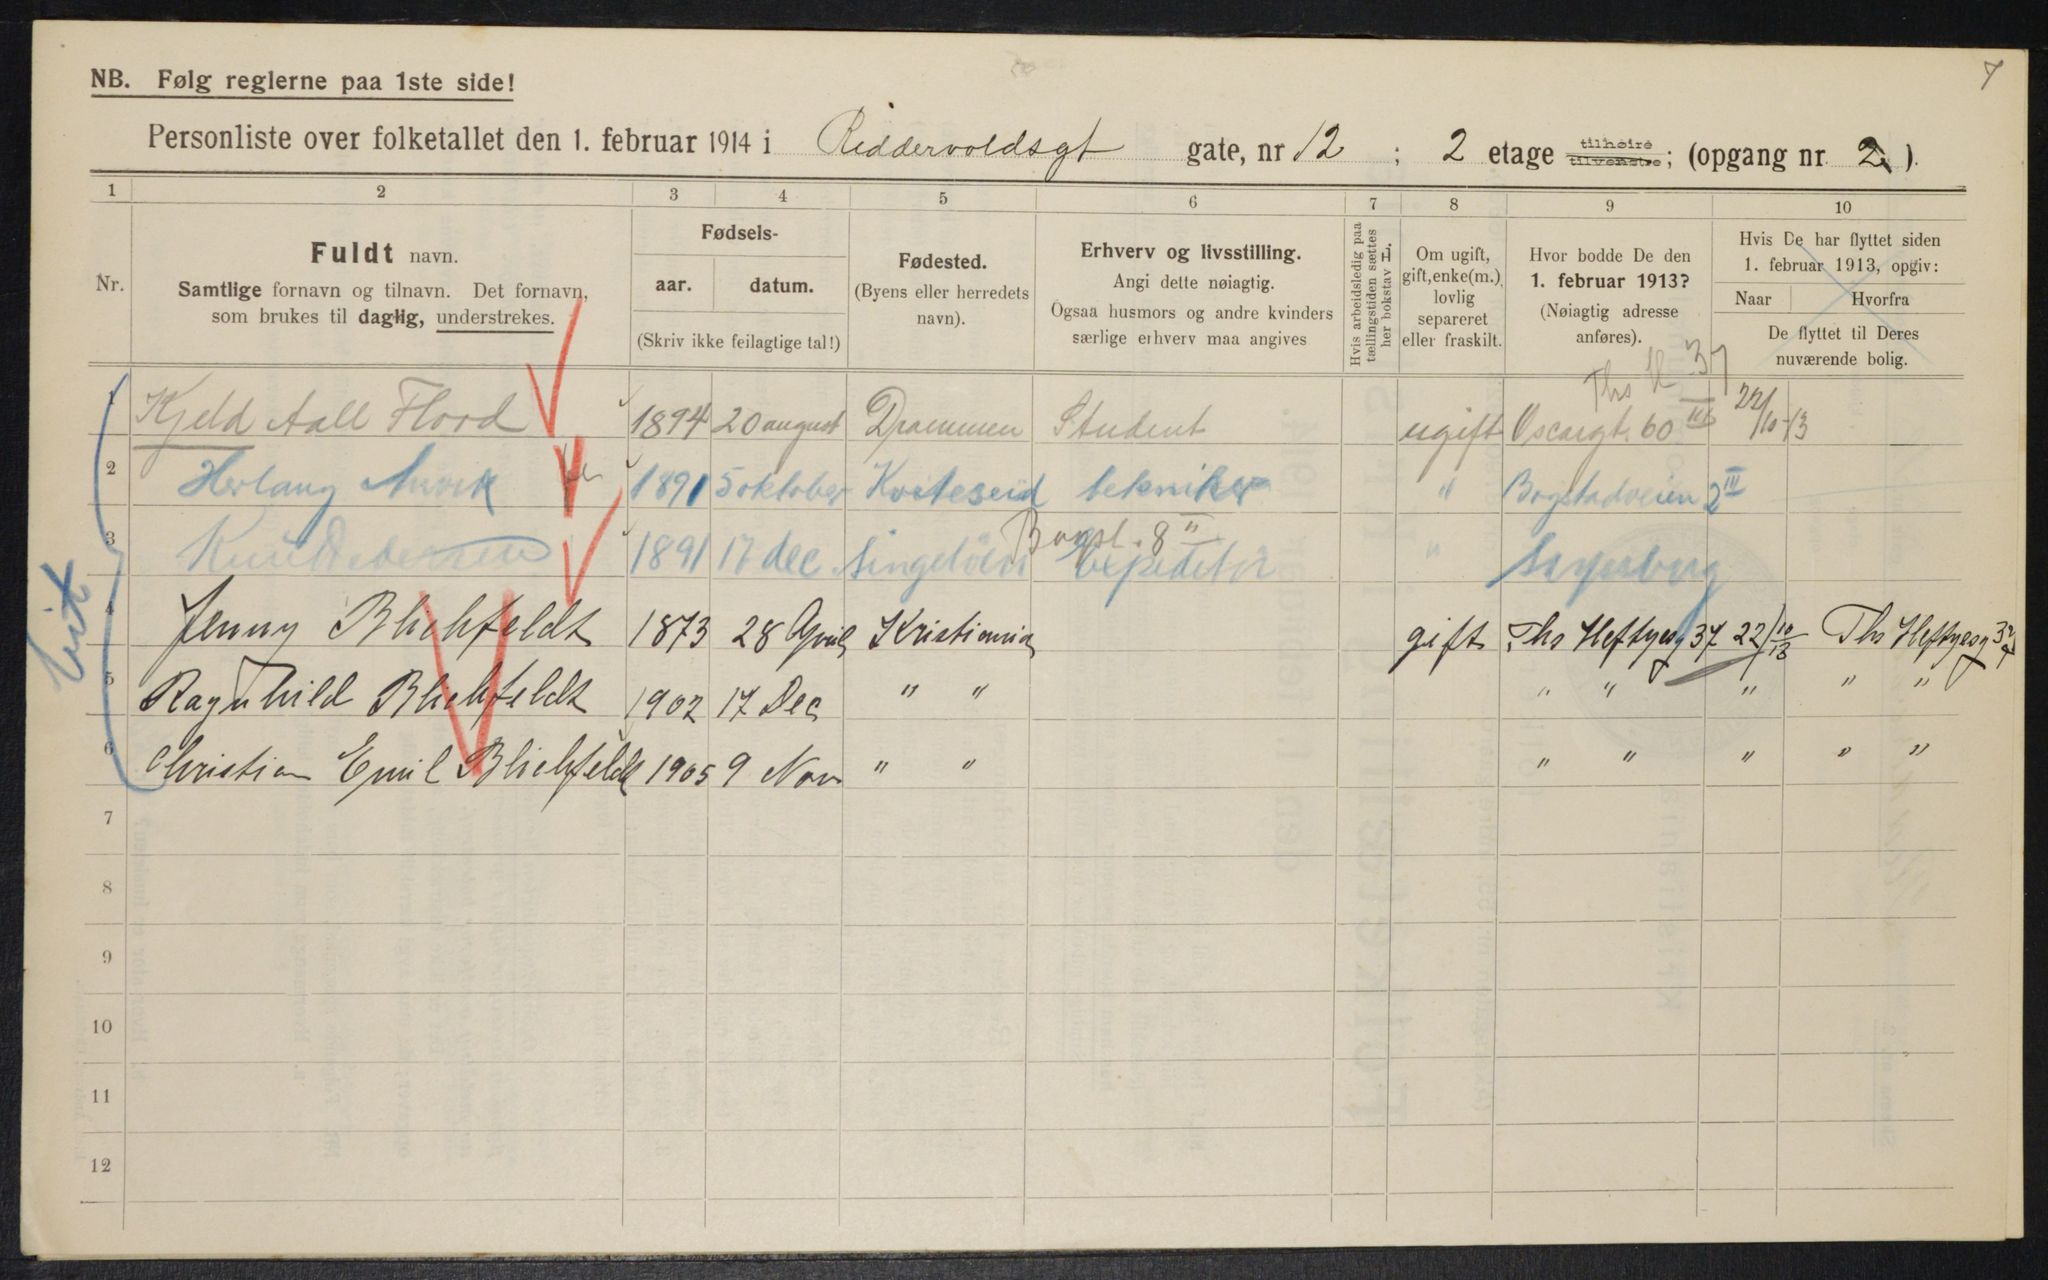 7
NB. Følg reglerne paa 1ste side!
Personliste over folketallet den 1. februar 1914 i Riddervoldsgt gate, nr 12 ; 2 etage tilhøire tilvenstre; (opgang nr 2).
1 2 3 4 5 6 7 8 9 10
Nr.
Fuldt navn.
Samtlige fornavn og tilnavn. Det fornavn,
som brukes til daglig, understrekes.
Fødsels-
aar. datum.
(Skriv ikke feilagtige tal!)
Fødested.
(Byens eller herredets
navn).
Erhverv og livsstilling.
Angi dette nøiagtig.
Ogsaa husmors og andre kvinders
særlige erhverv maa angives
Hvis arbeidsledig paa
tællingstiden sættes
her bokstav L.
Om ugift,
gift, enke(m.),
lovlig
separeret
eller fraskilt.
Hvor bodde De den
1. februar 1913?
(Nøiagtig adresse
anføres).
Hvis De har flyttet siden
1. februar 1913, opgiv:
Naar Hvorfra
De flyttet til Deres
nuværende bolig.
Ths H 37
1 Kjeld Aall Flood 1894 20 august Drammen Student ugift Oscarsgt. 60 III 22/10-13
2 Herlaug 1891 5 oktober Kviteseid tekniker " Bogstadveien 2 III
Bogst. 8 II
3 Knut Pedersen 1891 17 dec. expeditør "
4 Jenny Blichfeldt 1873 28 April Kristiania gift Ths Heftyesg 37 22/10 13 Ths Heftyesg 37
5 Ragnhild Blichfeldt 1902 17 Dec " " " " " " "
6 Christian Emil Blichfeldt 1905 9 Nov " " " " " " "
7
8
9
10
11
12